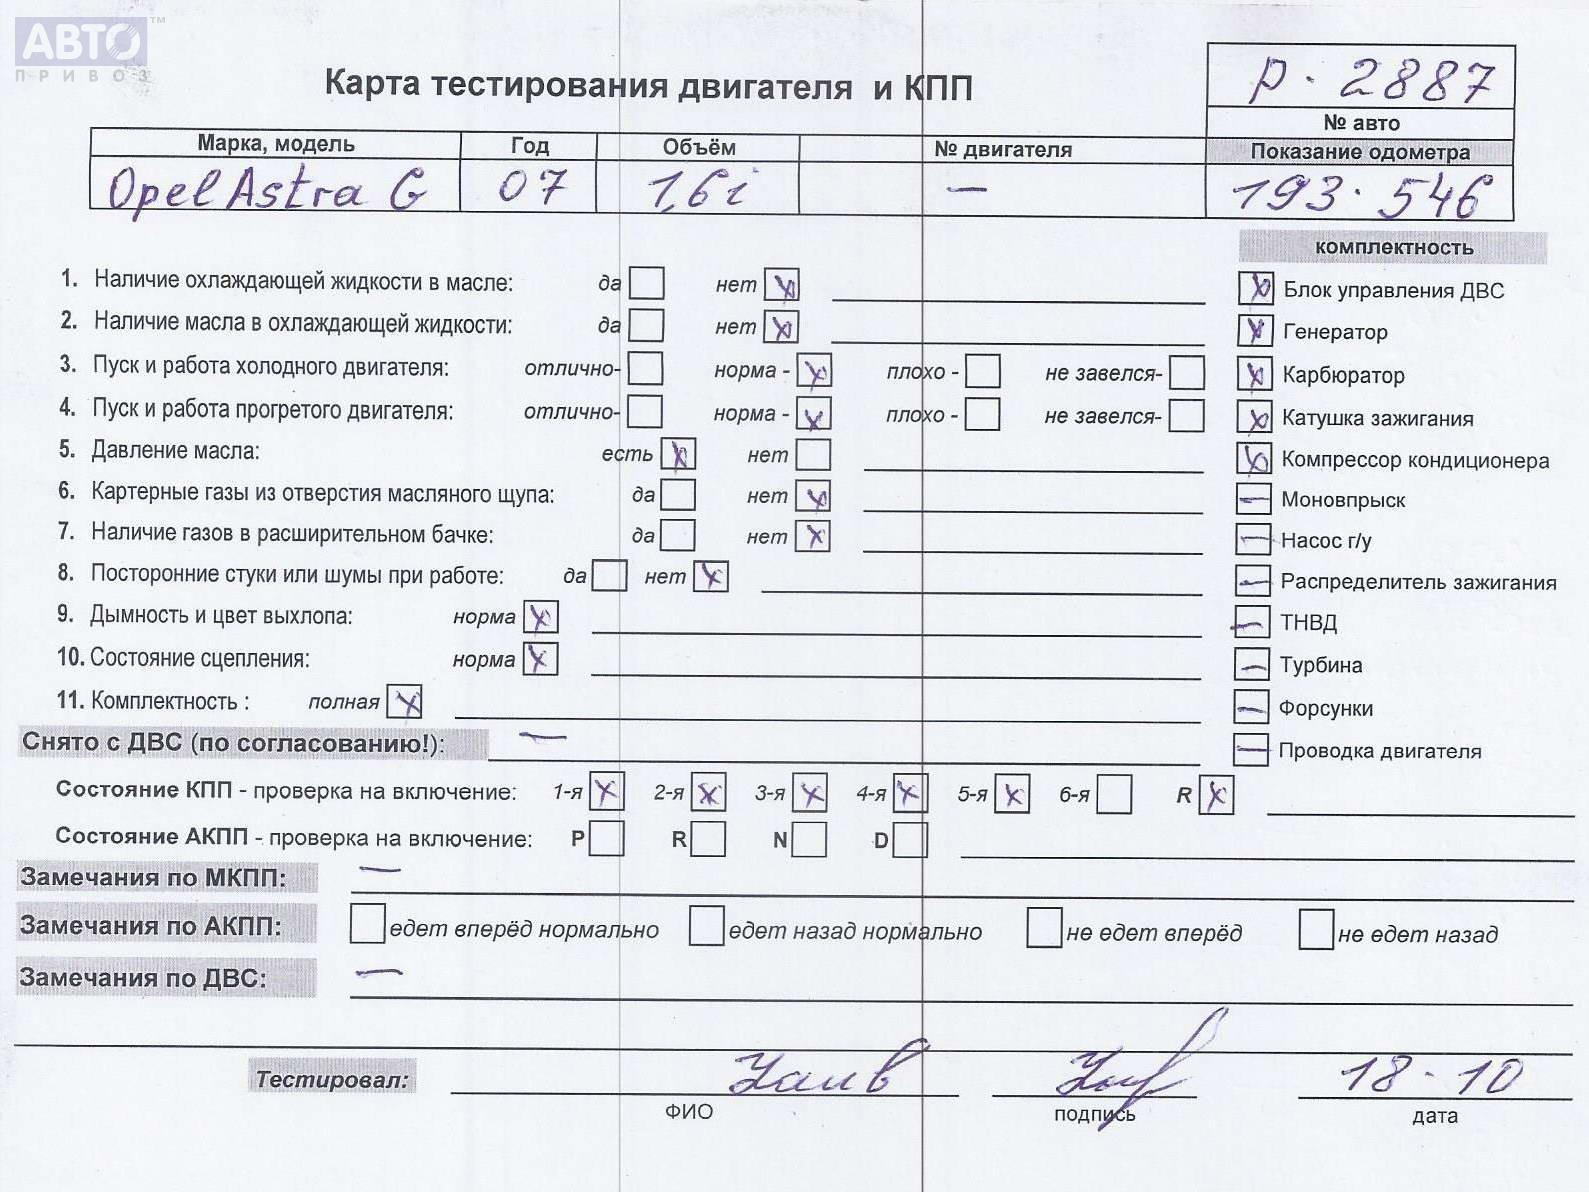 АВТО ™
ПРИВОЗ
Карта тестирования двигателя и КПП
р. 2887
№ авто
Марка, модель Год Объём № двигателя Показание одометра
Opel Astra G 07 1,6i — 193.546
комплектность
1. Наличие охлаждающей жидкости в масле: да нет X
2. Наличие масла в охлаждающей жидкости: да нет X
3. Пуск и работа холодного двигателя: отлично- норма - X плохо - не завелся-
4. Пуск и работа прогретого двигателя: отлично- норма - X плохо - не завелся-
5. Давление масла: есть X нет
6. Картерные газы из отверстия масляного щупа: да нет X
7. Наличие газов в расширительном бачке: да нет X
8. Посторонние стуки или шумы при работе: да нет X
9. Дымность и цвет выхлопа: норма X
10. Состояние сцепления: норма X
11. Комплектность : полная X
X Блок управления ДВС
X Генератор
X Карбюратор
X Катушка зажигания
X Компрессор кондиционера
— Моновпрыск
— Насос г/у
— Распределитель зажигания
— ТНВД
— Турбина
— Форсунки
— Проводка двигателя
Снято с ДВС (по согласованию!): —
Состояние КПП - проверка на включение: 1-я X 2-я X 3-я X 4-я X 5-я X 6-я R X
Состояние АКПП - проверка на включение: P R N D
Замечания по МКПП: —
Замечания по АКПП: едет вперёд нормально едет назад нормально не едет вперёд не едет назад
Замечания по ДВС: —
Тестировал: 18.10
ФИО подпись дата